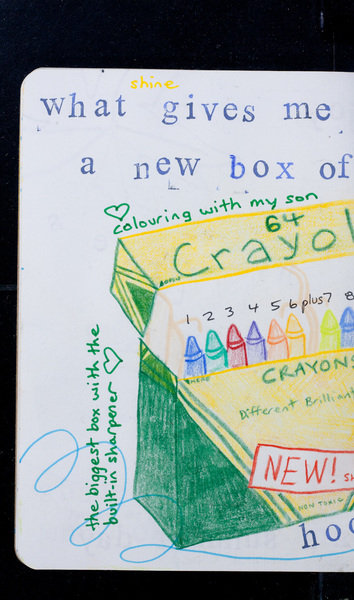 shine
what gives me
a new box of
colouring with my son
64
Crayol
1 2 3 4 5 6 plus 7 8
CRAYONS
Different Brilliant
the biggest box with the
built-in sharpener
NEW!
NON TOXIC
hoo